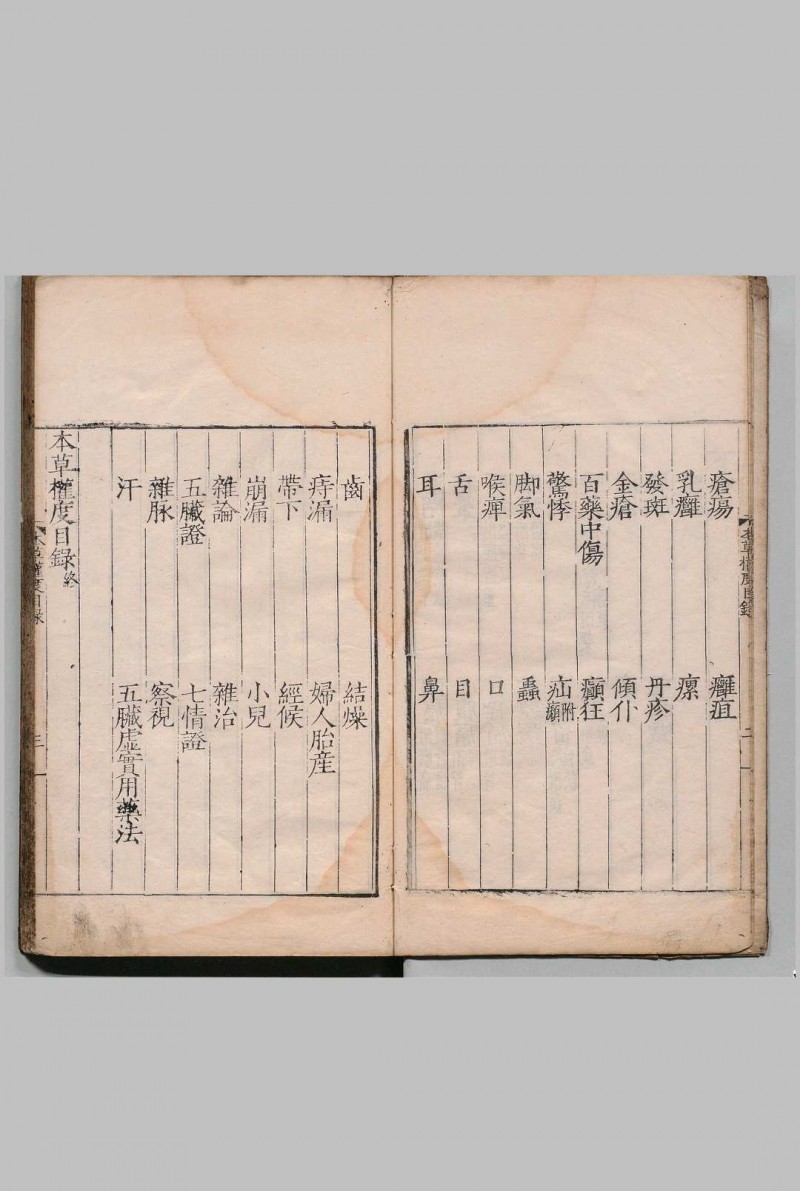 瘡瘍 癰疽
乳癰 瘰
發斑 丹疹
金瘡 傾仆
百藥中傷 癲狂
驚悸 疝附㿗
脚氣 蟲
喉痺 口
舌 目
耳 鼻
齒 結燥
痔漏 婦人胎産
帶下 經候
崩漏 小兒
雜論 雜治
五臟證 七情證
雜脉 察視
汗 五臟虛實用藥法
本草權度目録終